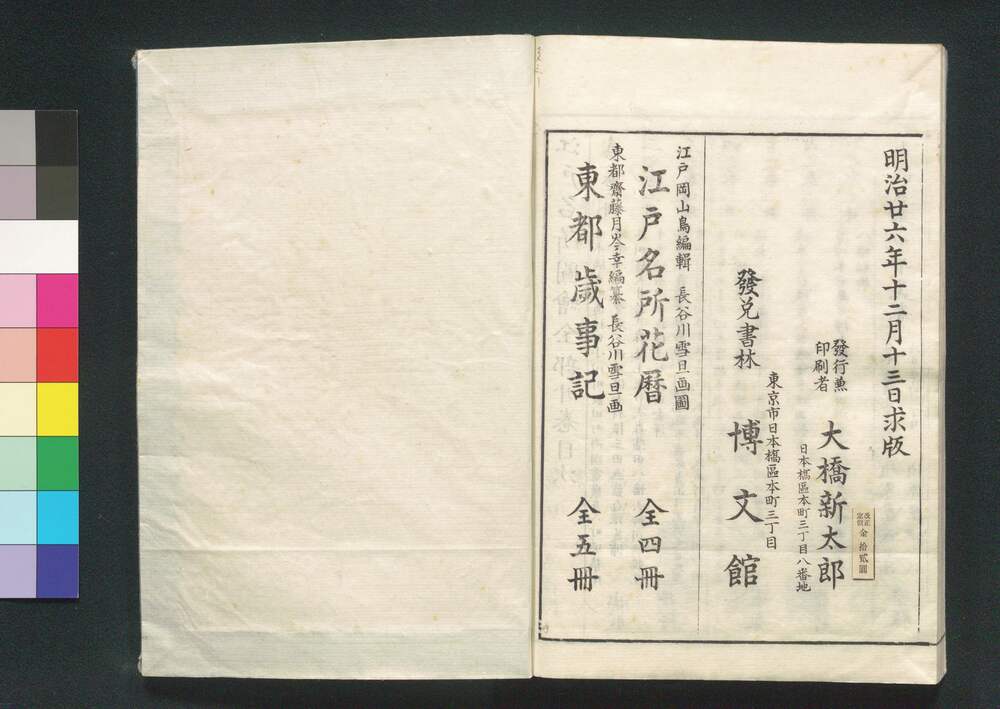 明治廿六年十二月十三日求版
發行兼
印刷者
大橋新太郎
日本橋區本町三丁目八番地
改正
定價
金拾貳圓
東京市日本橋區本町三丁目
發兌書林
博文館
江戸岡山鳥編輯 長谷川雪旦画圖
江戸名所花暦 全四冊
東都齋藤月岑幸編纂 長谷川雪旦画
東都歳事記 全五冊